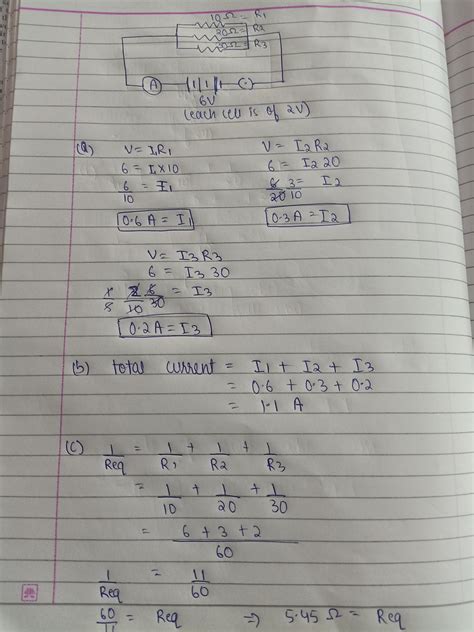 10Ω = R1
20Ω = R2
30Ω = R3
A
6V
(each cell is of 2V)
(a) V = I1R1 V = I2R2
6 = I1 × 10 6 = I2 20
6/10 = I1 6/20 3/10 = I2
0.6 A = I1 0.3 A = I2
V = I3 R3
6 = I3 30
2/10 6/30 = I3
0.2 A = I3
(b) total current = I1 + I2 + I3
= 0.6 + 0.3 + 0.2
= 1.1 A
(c) 1/Req = 1/R1 + 1/R2 + 1/R3
= 1/10 + 1/20 + 1/30
= 6 + 3 + 2/60
1/Req = 11/60
60/11 = Req ⇒ 5.45 Ω = Req